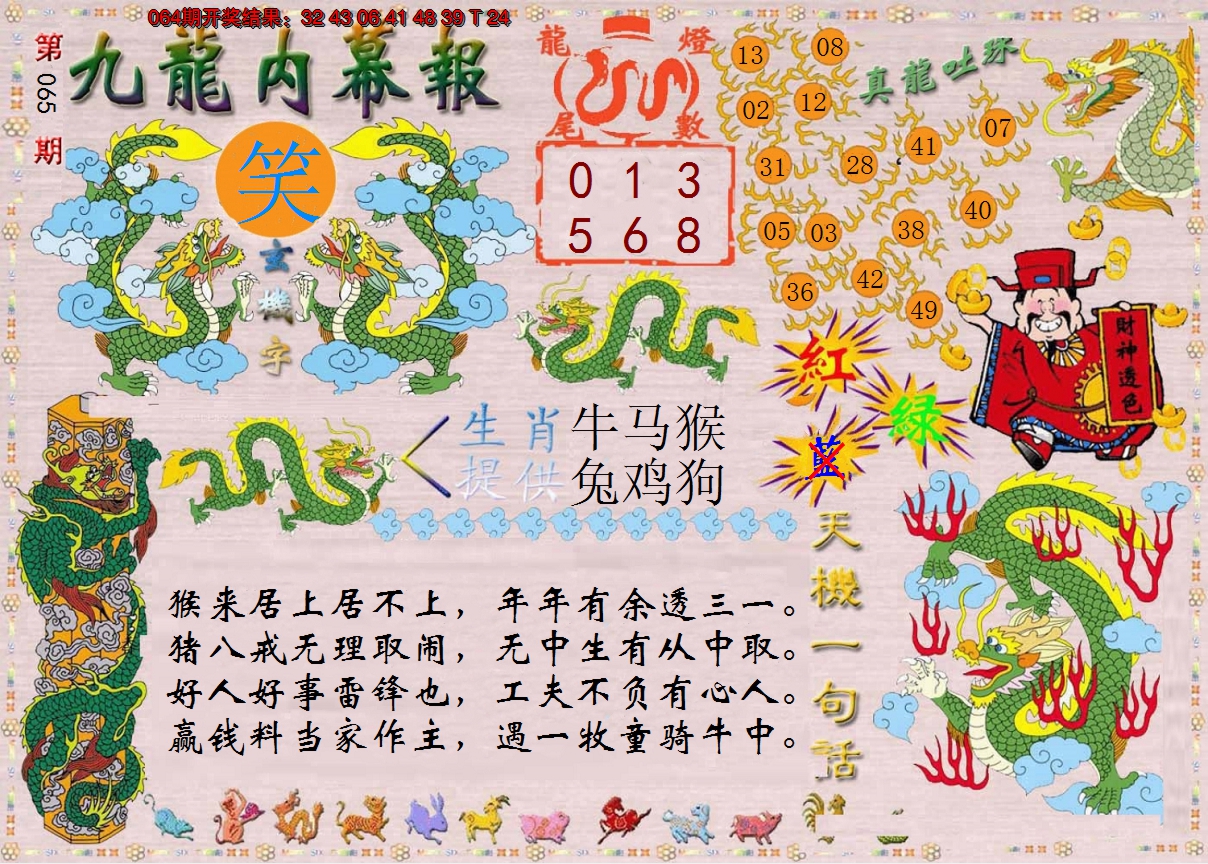 064期开奖结果：32 43 06 41 48 39 T 24
第065期
九龍内幕報
笑
玄機字
龍燈尾數
0 1 3
5 6 8
真龍吐珠
13 08
02 12
31 28 41 07
05 03 38 40
36 42 49
財神透色
紅
綠
藍
生肖 牛马猴
提供 兔鸡狗
天機一句話
猴来居上居不上，年年有余透三一。
猪八戒无理取闹，无中生有从中取。
好人好事雷锋也，工夫不负有心人。
赢钱料当家作主，遇一牧童骑牛中。